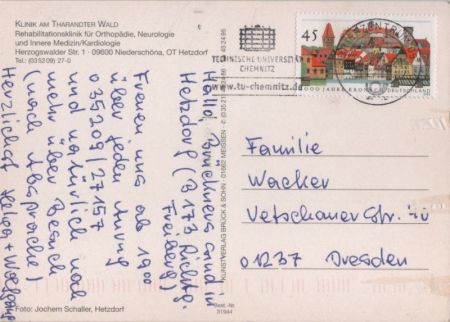 KLINIK AM THARANDTER WALD
Rehabilitationsklinik für Orthopädie, Neurologie
und Innere Medizin/Kardiologie
Herzogswalder Str. 1 · 09600 Niederschöna, OT Hetzdorf
Tel.: (0 35209) 27-0
Hallo
in
Hetzdorf (B 173 Richtg.
Freiberg)
Freuen uns ab 19.00
über jeden Anruf
035209/27157
und natürlich noch
mehr über Besuch
(nach Absprache)
Herzlichst Helga + Wolfgang
Foto: Jochem Schaller, Hetzdorf
KUNSTVERLAG BRÜCK & SOHN · 01662 MEISSEN
Best.-Nr.
31944
TECHNISCHE UNIVERSITÄT
CHEMNITZ
www.tu-chemnitz.de
45
1000 JAHRE KRONACH
DEUTSCHLAND
Familie
Wacker
Vetschauer Str.
01237 Dresden